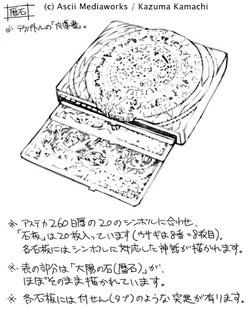 暦石
(c) Ascii Mediaworks / Kazuma Kamachi
※ テクパトルの「魔導書」。
※ アステカ260日暦の20のシンボルに合わせ、
「石板」は20枚入っています(ウサギは8番=8枚目)。
各石板にはシンボルに対応した神話が描かれます。
※ 表の部分は「太陽の石(暦石)」が、
ほぼそのまま描かれています。
※ 各石板には付せん(タブ)のような突起が有ります。